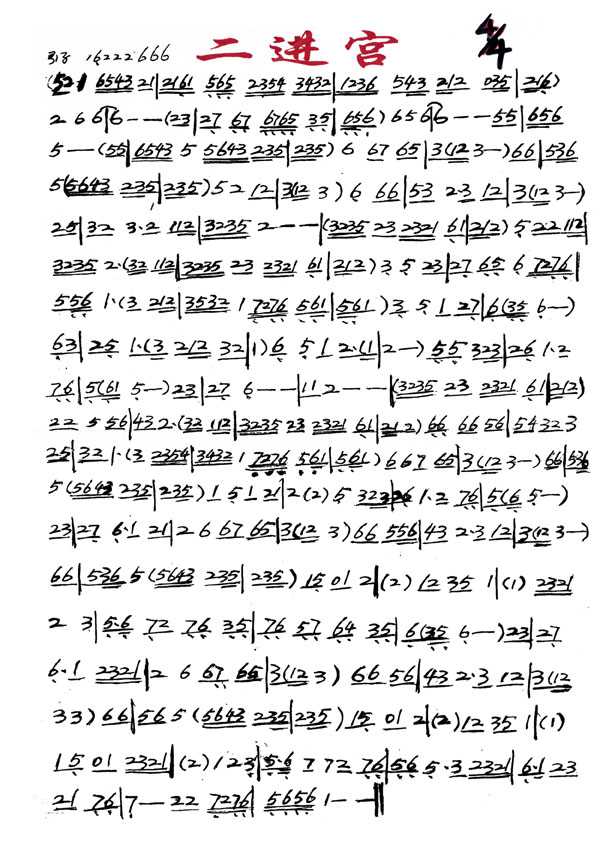 二进宫 4/4
(52·1 6543 21|2161 565 2354 3432|1236 543 212 035|216)
2 6 6 6 6 - - (23|27 67 6765 35|656) 656 6 - - 55|656
5 - - (55|6543 5 5643 235|235) 6 67 65|3(12 3-)66|536
5(5643 235|235)52 12|3(12 3) 6 66|53 2·3 12|3(12 3-)
25|32 3·2 112|3235 2 - - -|(3235 23 2321 61|212) 5 22 112|
3235 2·(32 112|3235 23 2321 61|212) 3 5 23|27 65 6 7276|
556 1·(3 212|3532 1 7276 561|561) 3 5 1 27|6(35 6-)
63|25 1·(3 212 32|1) 6 5 1 2·(1|2-) 55 323|26 1·2
76|5(61 5-)23|27 6 - - -|11 2 - - -|(3235 23 2321 61|212)
22 5 56|43 2·(32 112|3235 23 2321 61|212) 66 66 56|54 32 3
25|32 1·(3 2354|3432 1 7276 561|561) 667 65|3(12 3-)66|536
5(5643 235|235)1 51 21|2(2)5 323|26 1·2 76|5(6 5-)
23|27 6·1 21|2 6 67 65|3(12 3)66 556|43 2·3 12|3(12 3-)
66|536 5(5643 235|235) 15 01 2|(2) 12 35 1|(1) 2321
2 3|5·6 72 76 35|76 57 64 35|6(35 6-)23|27
6·1 2321|2 6 67 65|3(12 3) 66 56|43 2·3 12|3(12
33)66|565(5643 235|235)15 01 2|(2)12 35 1|(1)
15 01 2321|(2)123|5·6 7 72 76|56 5·3 2321|6·1 23
21 76|7 - 22 7276|5656 1 - -‖